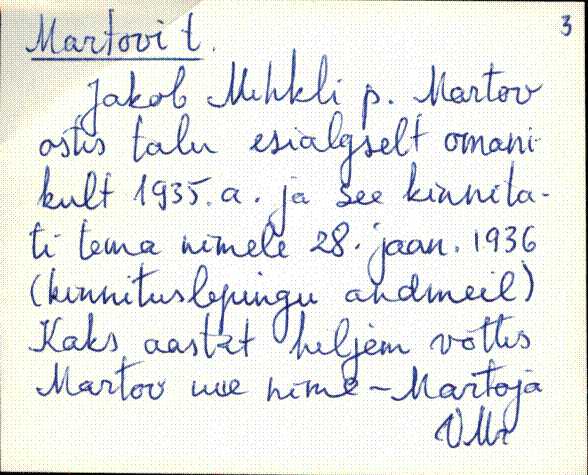 3
Martovi t.
Jakob Mihkli p. Martov
ostis talu esialgselt omani-
kult 1935. a. ja see kinnita-
ti tema nimele 28. jaan. 1936
(kinnituslepingu andmeil)
Kaks aastat hiljem võttis
Martov uue nime - Martoja
VMr